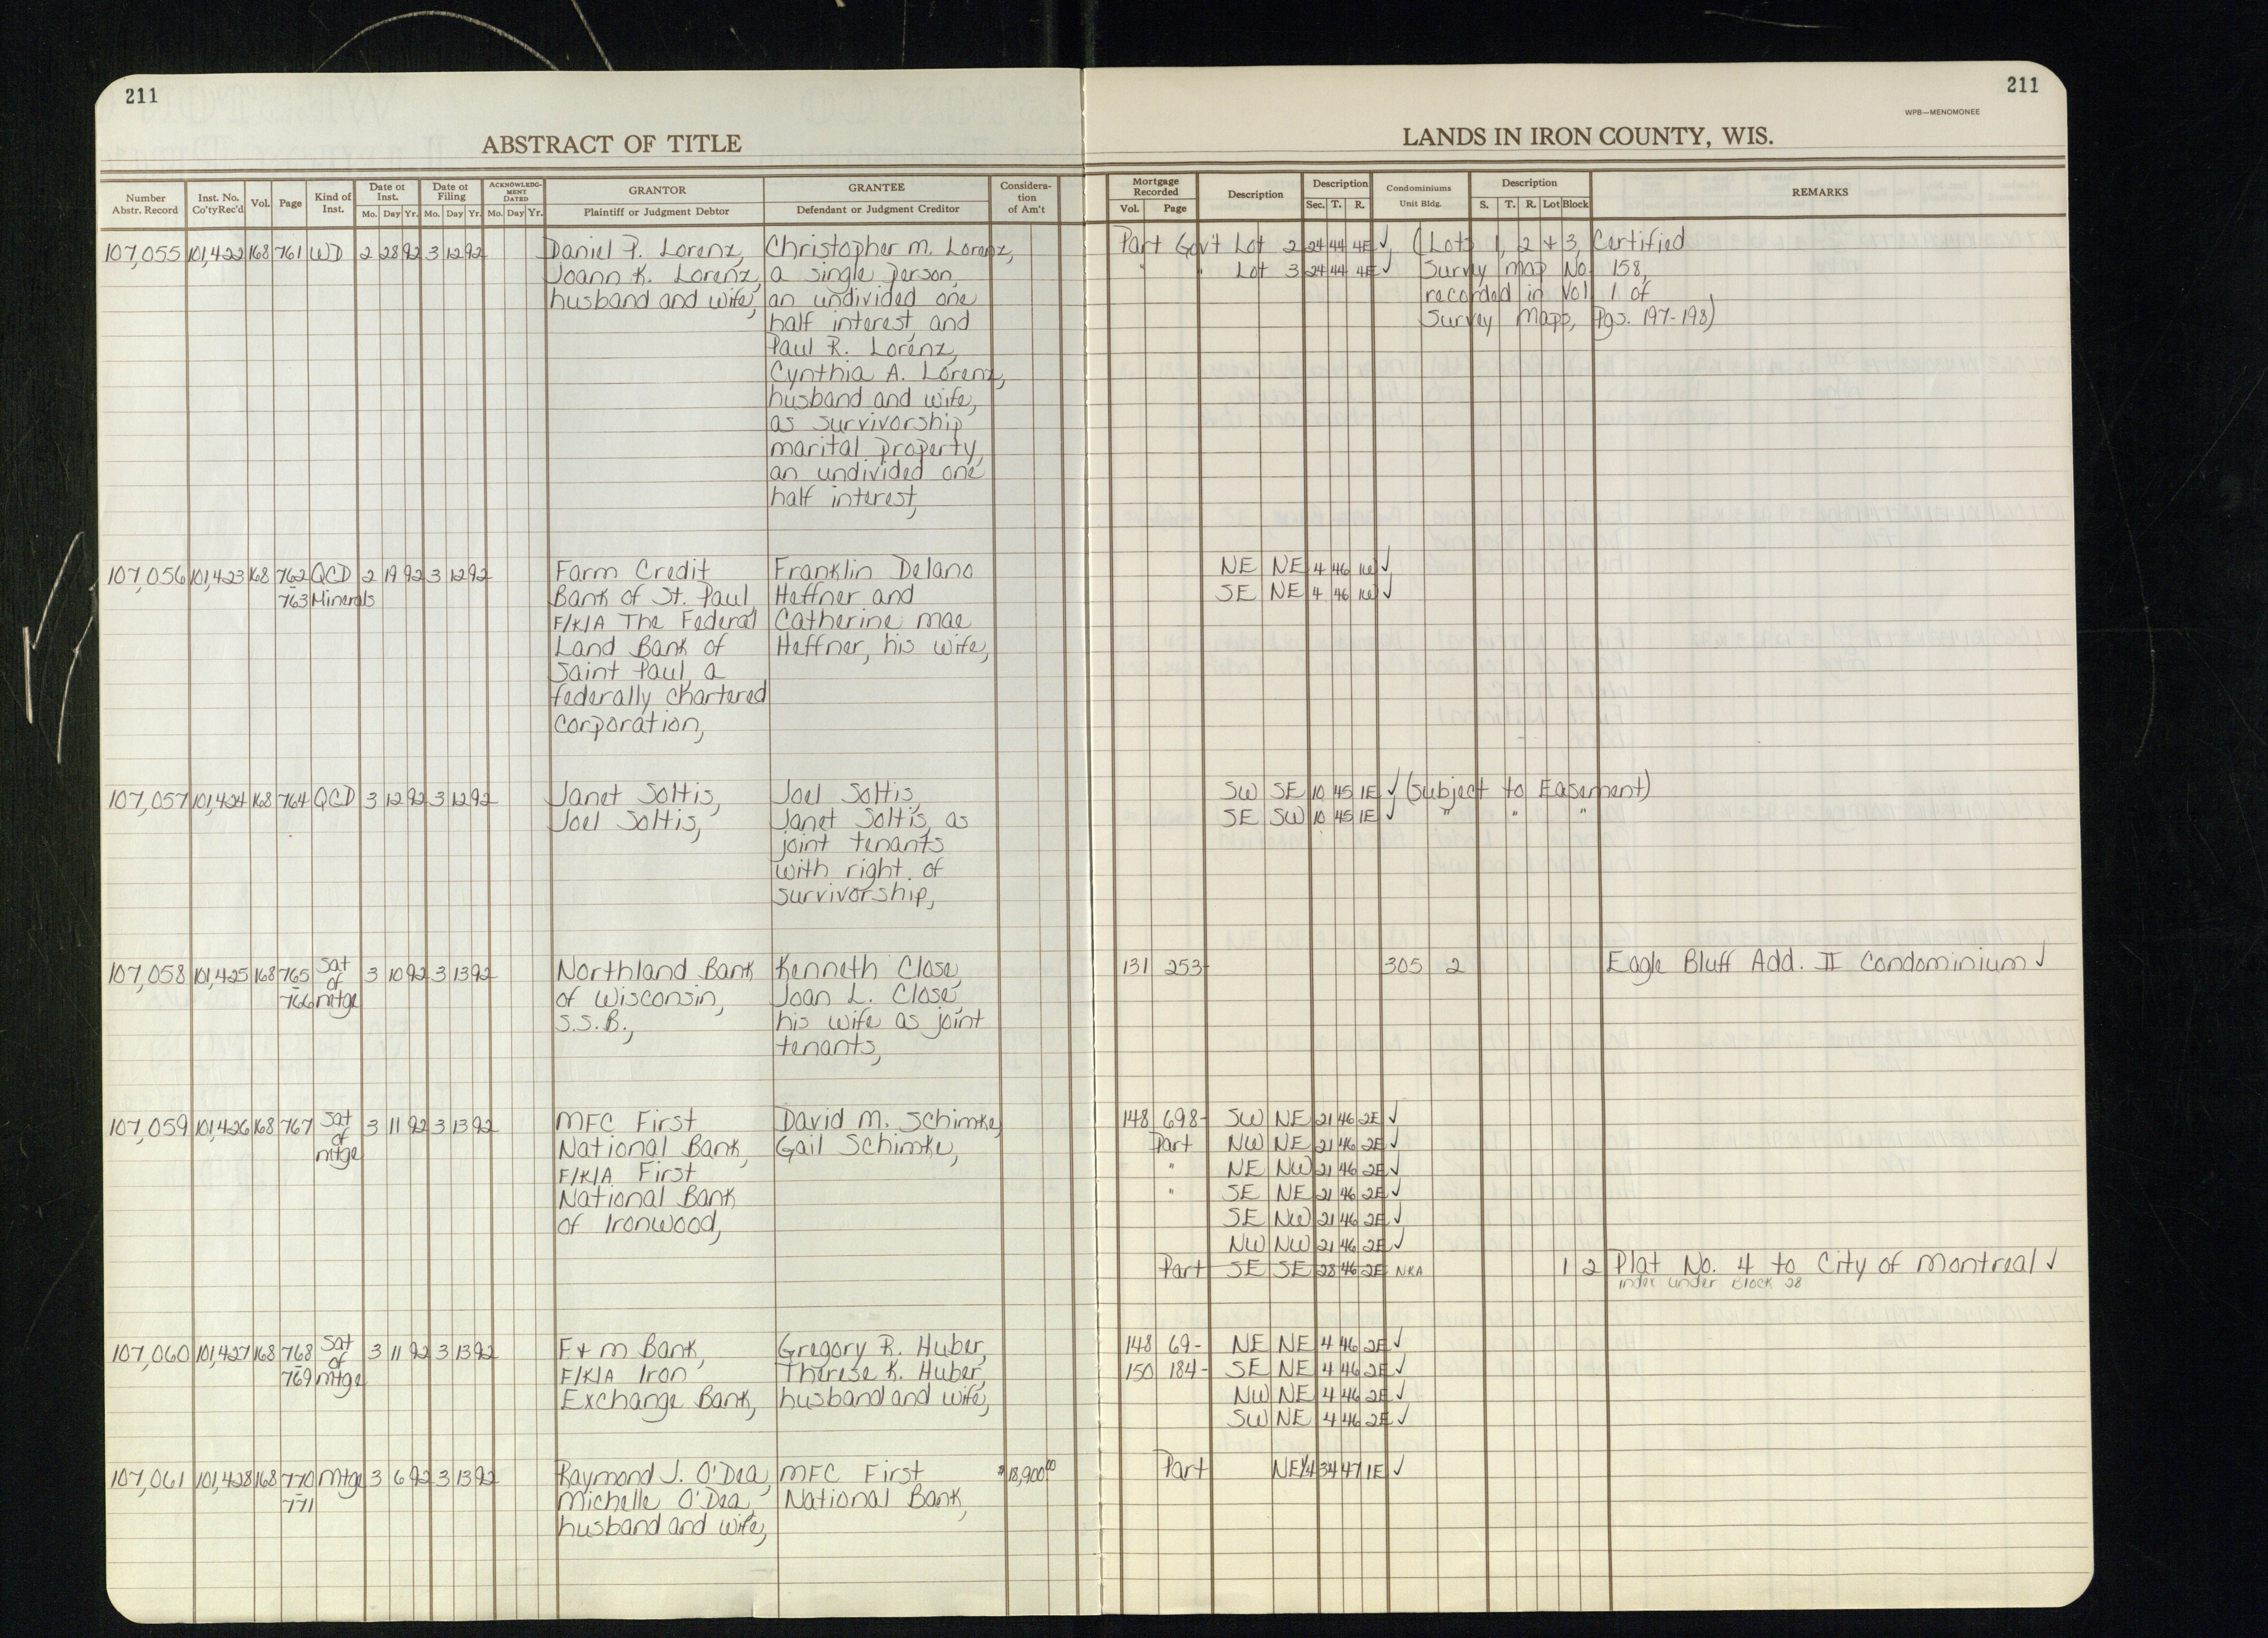 211
211
WPB—MENOMONEE
ABSTRACT OF TITLE
LANDS IN IRON COUNTY, WIS.
Number Abstr. Record
Inst. No. Co'tyRec'd
Vol.
Page
Kind of Inst.
Date of Inst.
Mo. Day Yr.
Date of Filing
Mo. Day Yr.
ACKNOWLEDGMENT DATED
Mo. Day Yr.
GRANTOR
Plaintiff or Judgment Debtor
GRANTEE
Defendant or Judgment Creditor
Consideration of Am't
Mortgage Recorded
Vol. Page
Description
Description
Sec. T. R.
Condominiums
Unit Bldg.
Description
S. T. R. Lot Block
REMARKS
107,055 101,422 168 761 WD 2 28 92 3 12 92 Daniel P. Lorenz, Christopher M. Lorenz, Part Gov't Lot 2 24 44 4E ✓ (Lots 1, 2 + 3, Certified
Joann K. Lorenz, a single person, " " Lot 3 24 44 4E ✓ Survey Map No. 158,
husband and wife, an undivided one recorded in Vol 1 of
half interest, and Survey Maps, Pgs. 197-198)
Paul R. Lorenz,
Cynthia A. Lorenz,
husband and wife,
as survivorship
marital property,
an undivided one
half interest,
107,056 101,423 168 762 QCD 2 19 92 3 12 92 Farm Credit Franklin Delano NE NE 4 46 1W ✓
-763 Minerals Bank of St. Paul Heffner and SE NE 4 46 1W ✓
F/K/A The Federal Catherine Mae
Land Bank of Heffner, his wife,
Saint Paul, a
federally chartered
corporation,
107,057 101,424 168 764 QCD 3 12 92 3 12 92 Janet Soltis, Joel Soltis, SW SE 10 45 1E ✓ (Subject to Easement)
Joel Soltis, Janet Soltis, as SE SW 10 45 1E ✓ " " "
joint tenants
with right of
survivorship,
107,058 101,425 168 765 Sat 3 10 92 3 13 92 Northland Bank Kenneth Close, 131 253- 305 2 Eagle Bluff Add. II Condominium ✓
-766 of mtge of Wisconsin, Joan L. Close,
S.S.B., his wife as joint
tenants,
107,059 101,426 168 767 Sat 3 11 92 3 13 92 MFC First David M. Schimke, 148 698- SW NE 21 46 2E ✓
of National Bank, Gail Schimke, Part NW NE 21 46 2E ✓
mtge F/K/A First " NE NW 21 46 2E ✓
National Bank " SE NE 21 46 2E ✓
of Ironwood, SE NW 21 46 2E ✓
NW NW 21 46 2E ✓
Part SE SE 28 46 2E NKA 1 2 Plat No. 4 to City of Montreal ✓
index under Block 28
107,060 101,427 168 768 Sat 3 11 92 3 13 92 F + M Bank, Gregory R. Huber, 148 69- NE NE 4 46 2E ✓
-769 of mtge F/K/A Iron Therese K. Huber, 150 184- SE NE 4 46 2E ✓
Exchange Bank, husband and wife, NW NE 4 46 2E ✓
SW NE 4 46 2E ✓
107,061 101,428 168 770 Mtge 3 6 92 3 13 92 Raymond J. O'Dea, MFC First $18,900.00 Part NE¼ 34 47 1E ✓
-771 Michelle O'Dea, National Bank,
husband and wife,